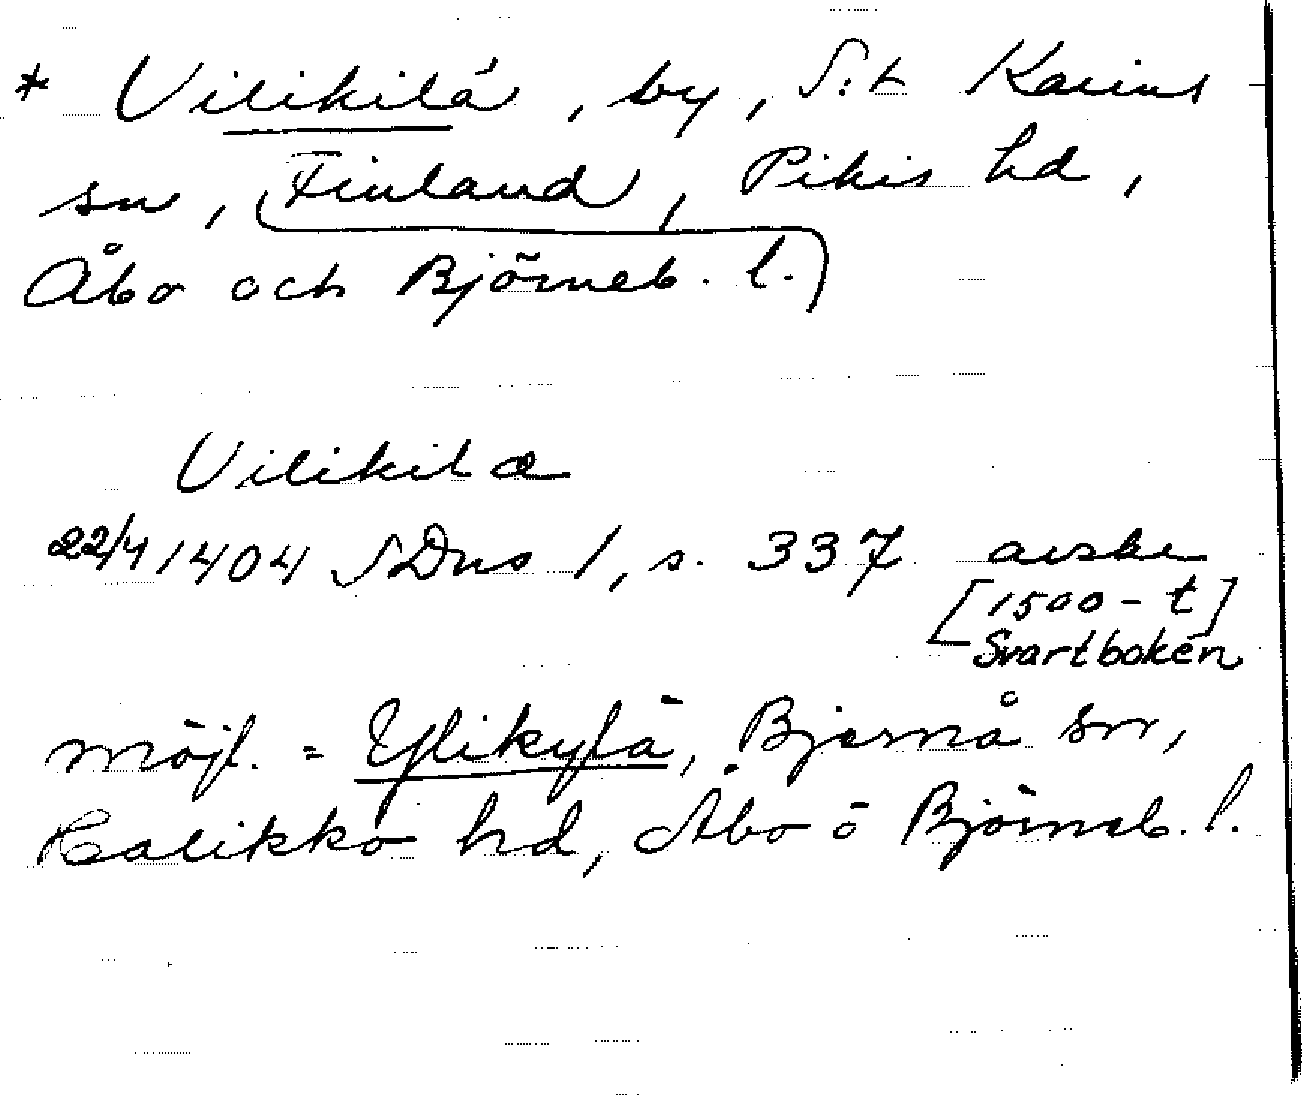 * Vilikilä, by, S:t Karins
sn, (Finland, Pikis hd,
Åbo och Björneb. l.)
Vilikilæ
22/4 1404 SDns 1, s. 337 avskr
[1500-t]
Svartboken
möjl. = Ylikylä, Bjärnå sn,
Halikko hd, Åbo o Björneb. l.